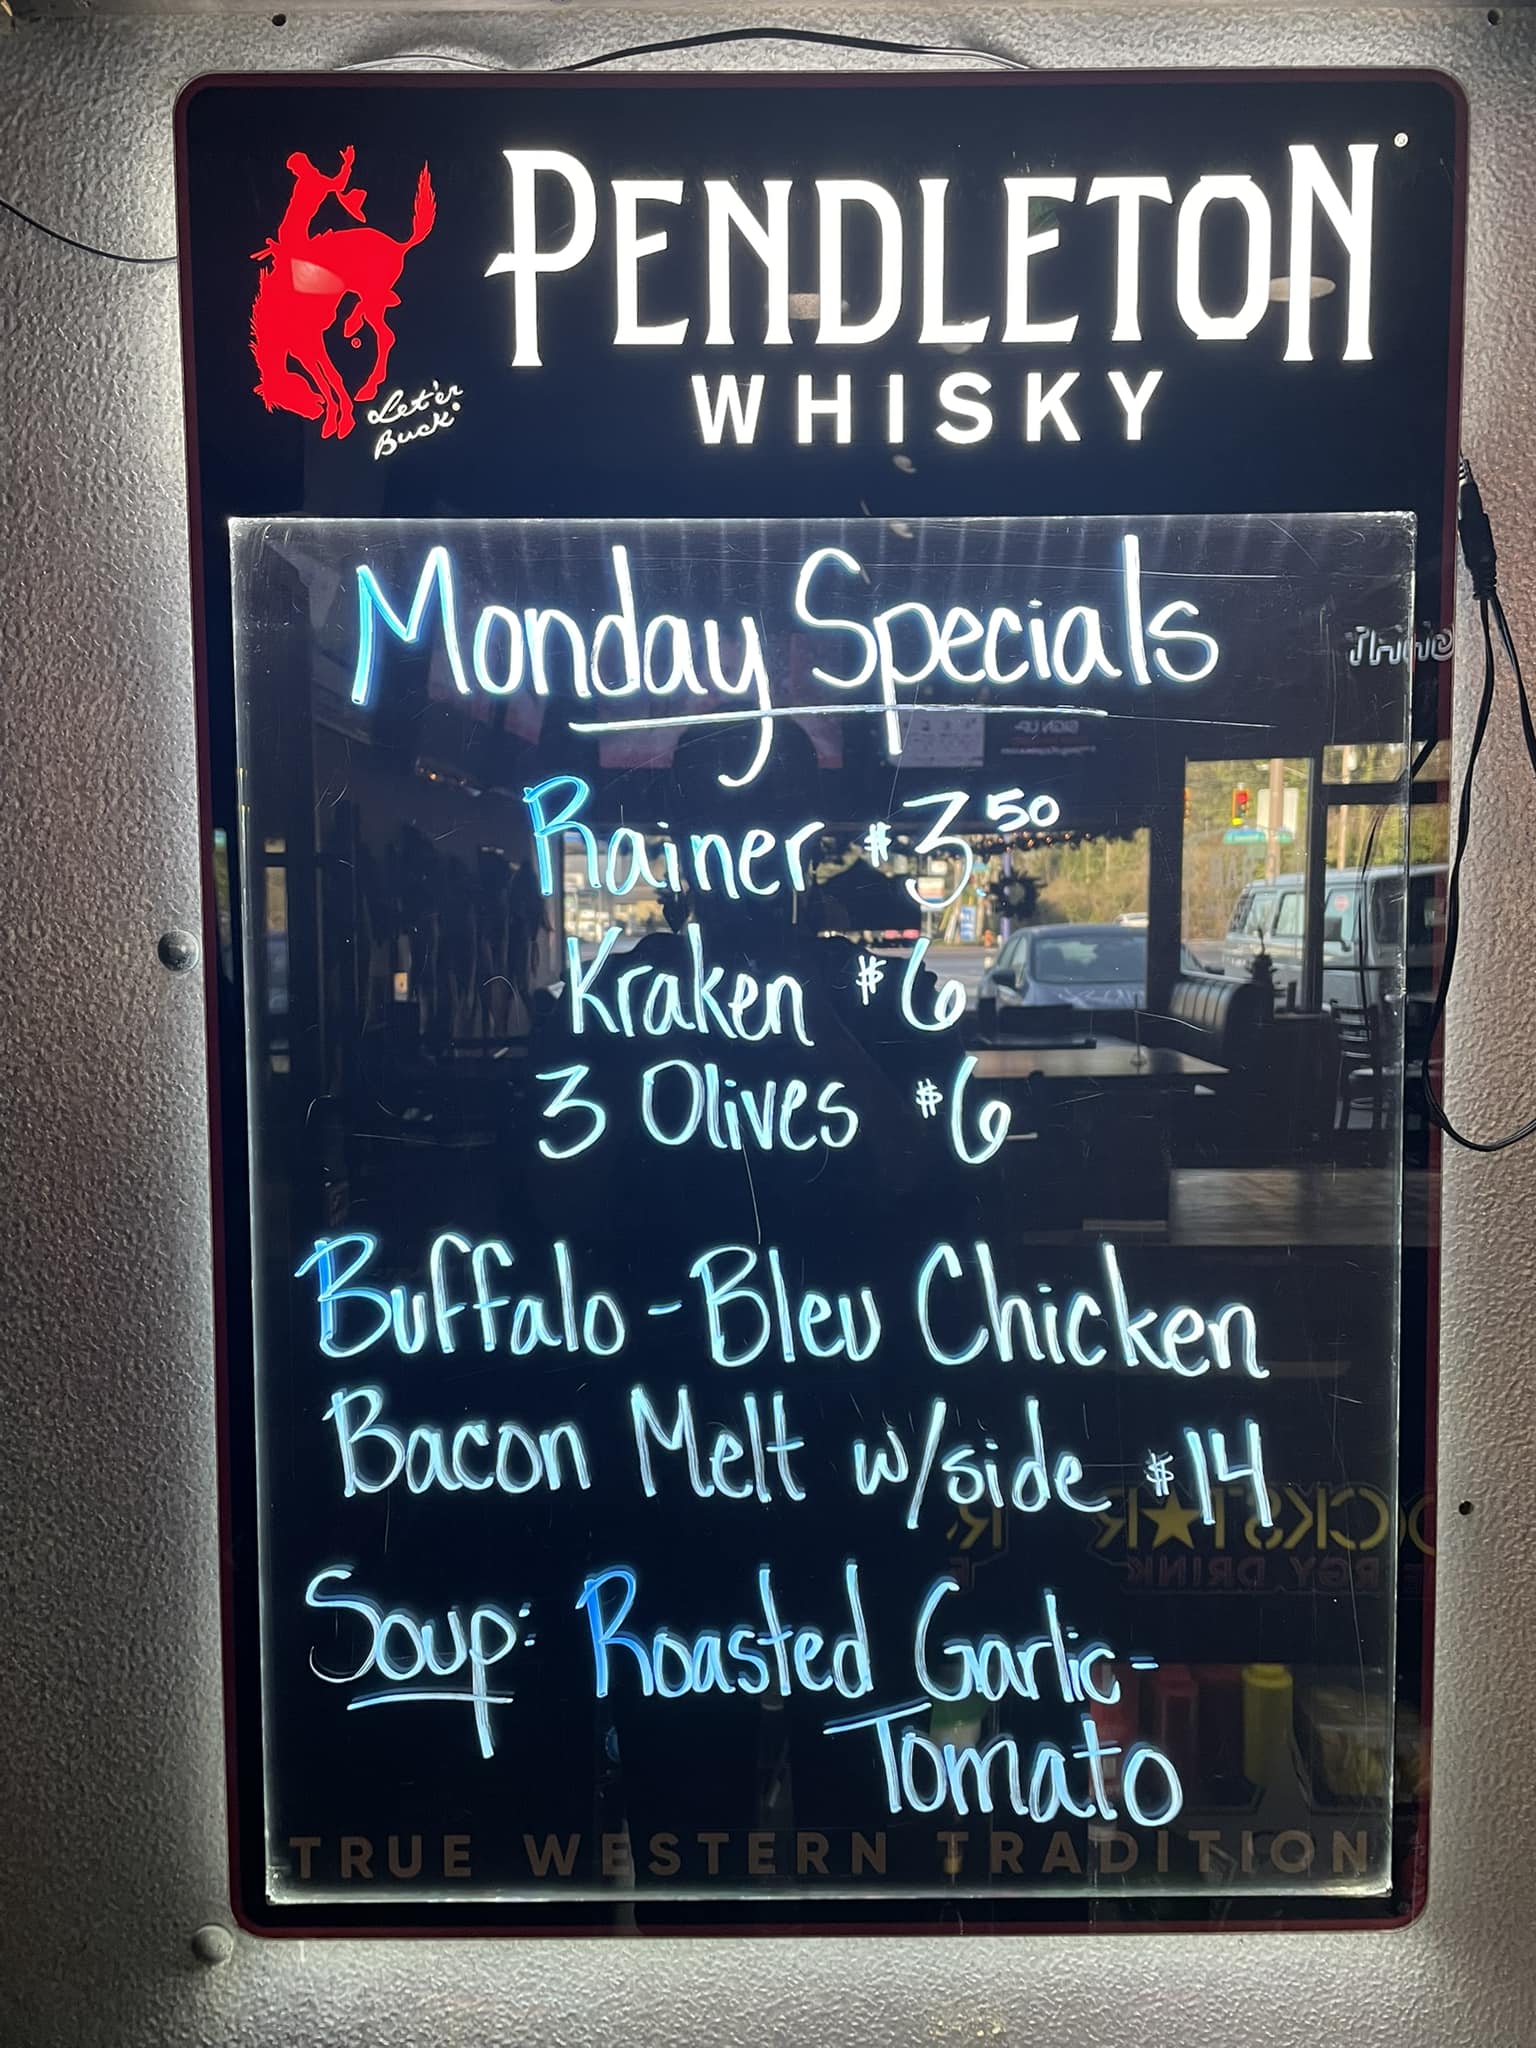 PENDLETON®
WHISKY
Let'er
Buck®
Monday Specials
Rainer $3.50
Kraken $6
3 Olives $6
Buffalo-Bleu Chicken
Bacon Melt w/side $14
Soup: Roasted Garlic-
Tomato
TRUE WESTERN TRADITION